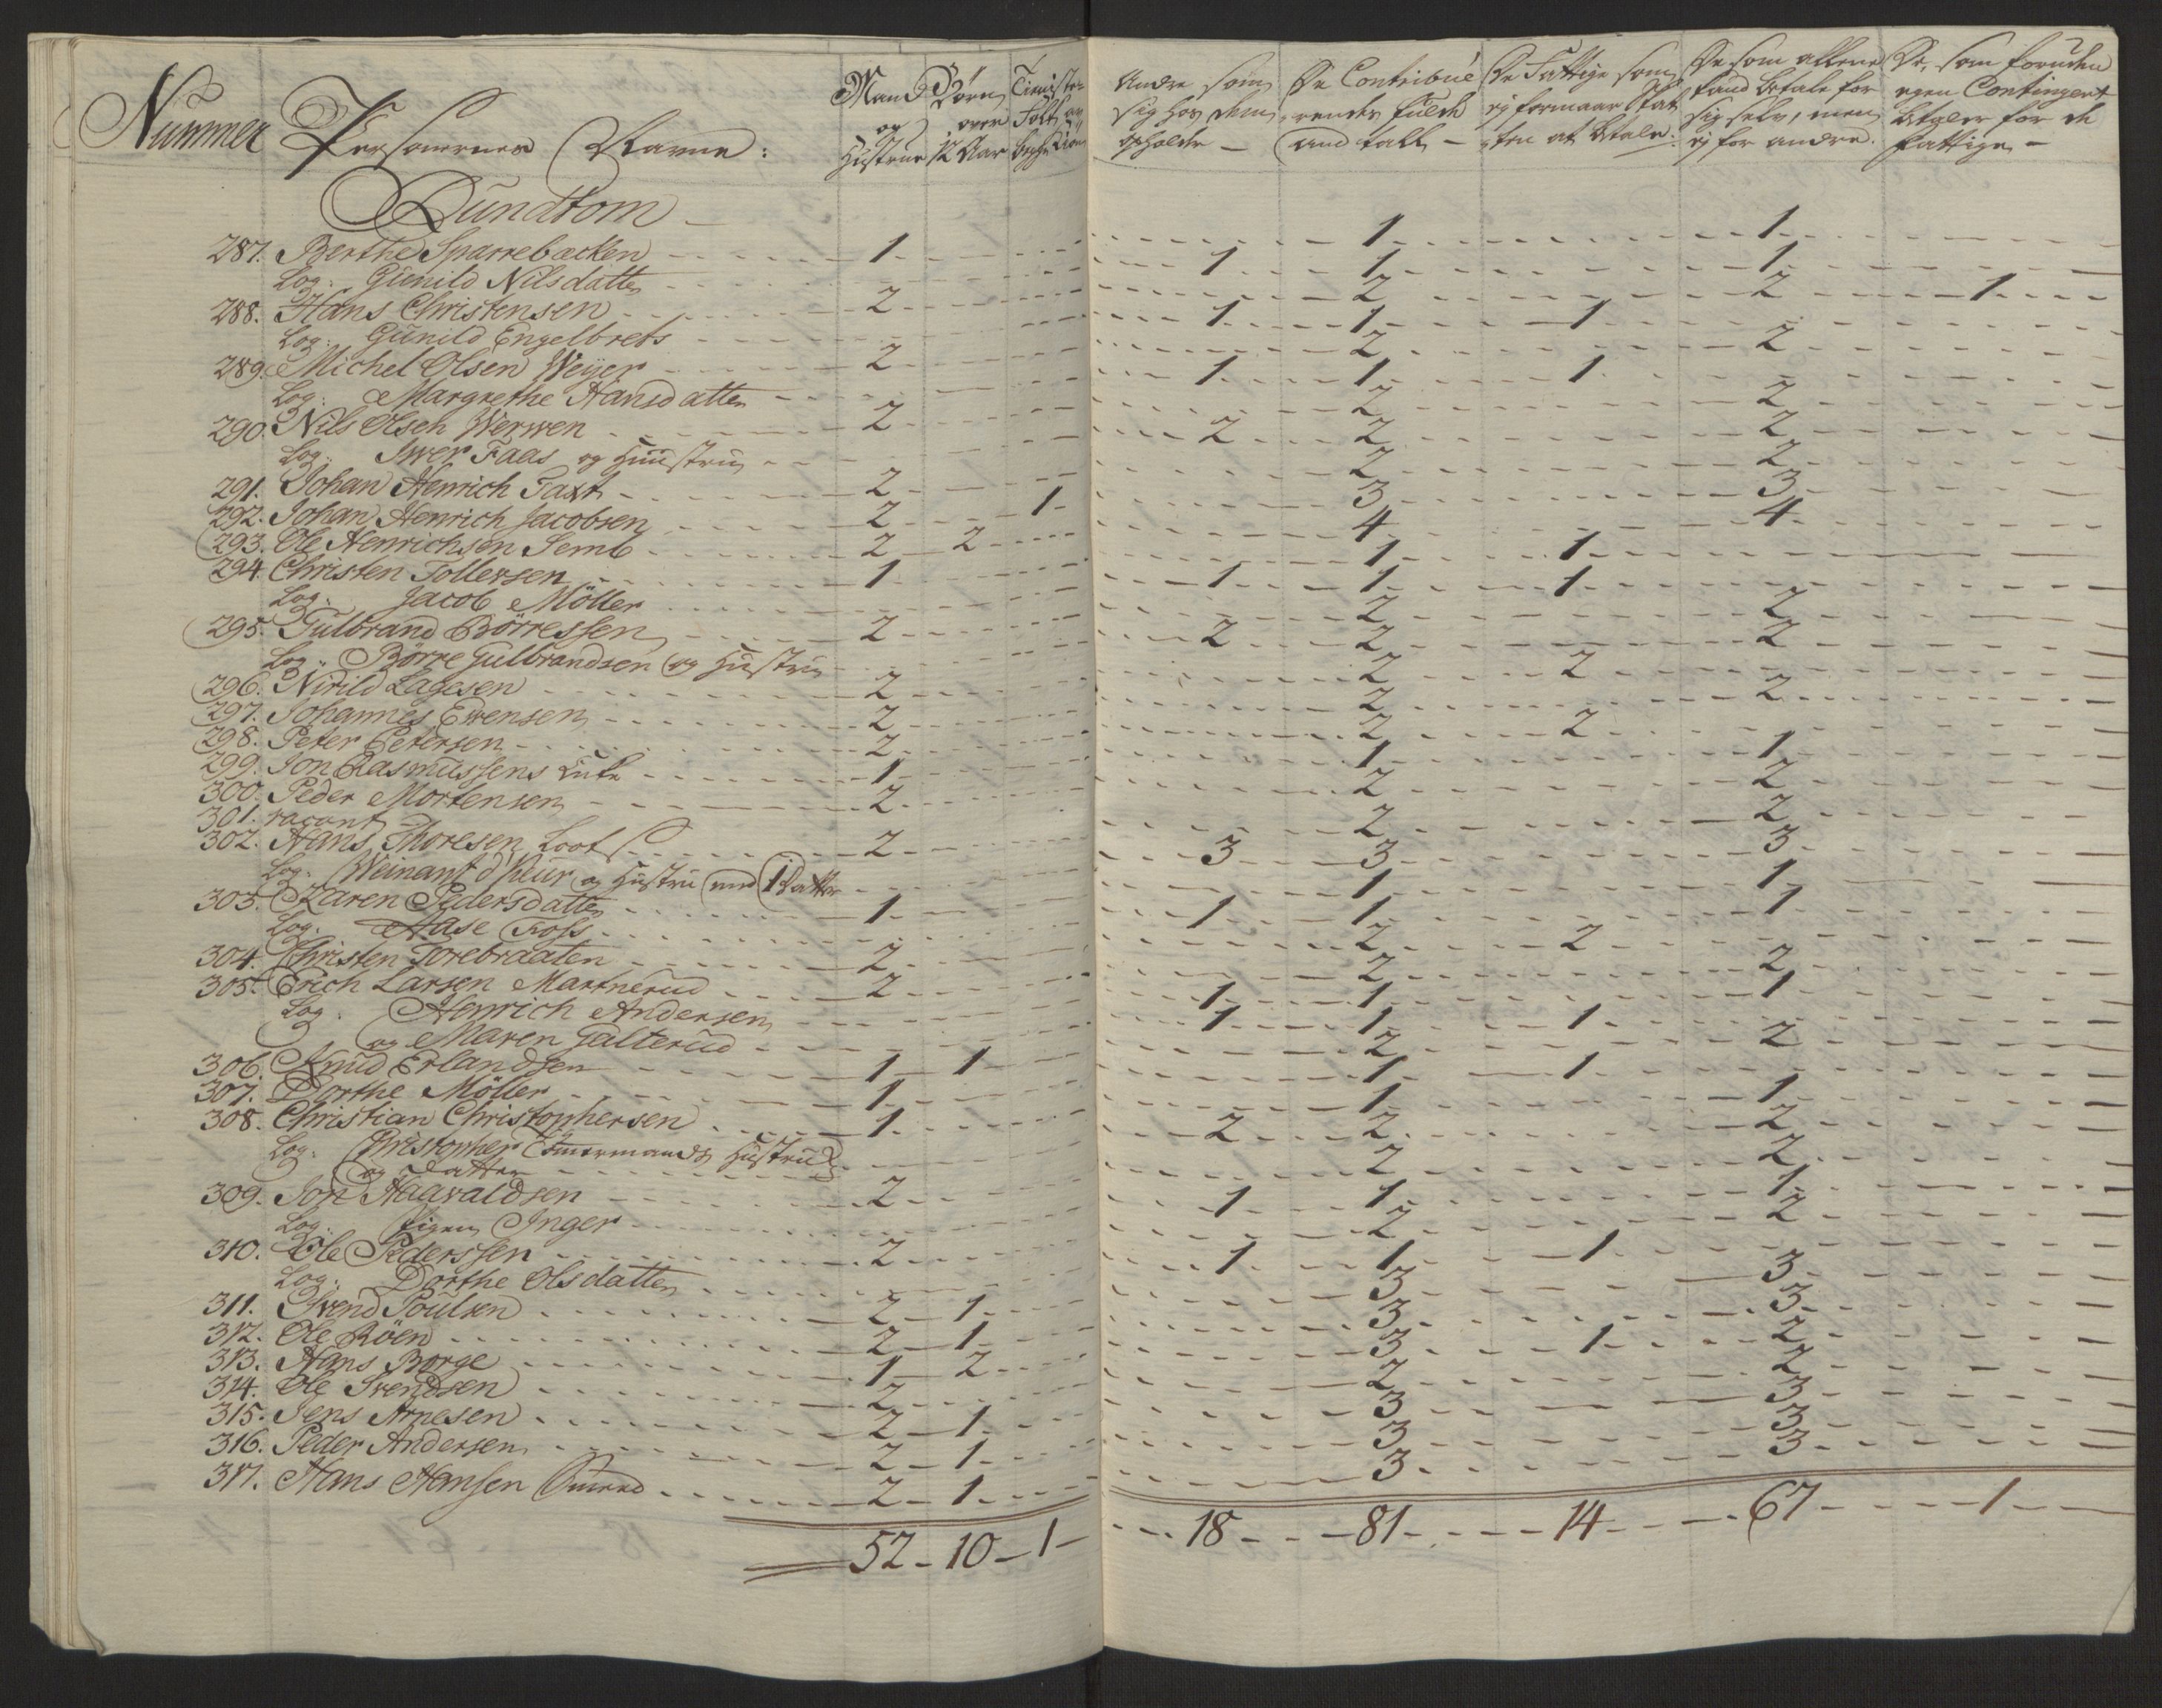 Nummer Personernes Navne: Mand og Hustrue Børn over 12 Aar Tieniste Folk og Andre som sig hos dem opholde De Contribuerendes fulde Antall De Fattige som ej formaar Skatten at betale De som allene kand betale for sig selv, men ej for andre. De, som foruden egen Contingent betaler for de fattige
Bundtom
287. Berthe Sparrebæcken 1 1 1
Log: Gunild Nilsdatter 1 1 1
288. Hans Christensen 2 2 2 1
Log: Gunild Engelbrets 1 1 1
289. Michel Olsen Weyer 2 2 2
Log: Margrethe Hansdatter 1 1 1
290. Nils Olsen Werwen 2 2 2
Log: Iwer Faas og Huustrue 2 2 2
291. Johan Henrich Taxt 2 2 2
292. Johan Henrich Jacobsen 2 1 3 3
293. Ole Henrichsen Semb 2 2 4 4
294. Christen Tollersen 1 1 1
Log: Jacob Möller 1 1 1
295. Gulbrand Börressen 2 2 2
Log: Börre Gulbrandsen og Hustrue 2 2 2
296. Nirild Lagesen 2 2 2
297. Johannes Evensen 2 2 2
298. Peter Petersen 2 2 2
299. Jon Rasmussens Enke 1 1 1
300. Peder Mortensen 2 2 2
301. vacant
302. Hans Thoresen Loots 2 2 2
Log: Weinant og Hustrue med 1 Datter 3 3 3
303. Karen Pedersdatter 1 1 1
Log: Aase Foss 1 1 1
304. Christen Torebraaten 2 2 2
305. Erich Larsen Martnerud 2 2 2
Log: Henrich Andersen 1 1 1
og Maren Galterud 1 1 1
306. Knud Erlandsen 1 1 2 2
307. Dorthe Möller 1 1 1
308. Christian Christophersen 1 1 1
Log: Christopher Tömermands Hustrue
og Datter 2 2 2
309. Jon Hagvaldsen 2 2 2
Log: Pigen Inger 1 1 1
310. Ole Pederssen 2 2 2
Log: Dorthe Olsdatter 1 1 1
311. Svend Poulsen 2 1 3 3
312. Ole Röen 2 1 3 3
313. Hans Borge 1 2 3 1 2
314. Ole Svendsen 2 2 2
315. Jens Arnesen 2 1 3 3
316. Peder Andersen 2 1 3 3
317. Hans Hansen 2 1 3 3
52 10 1 18 81 14 67 1